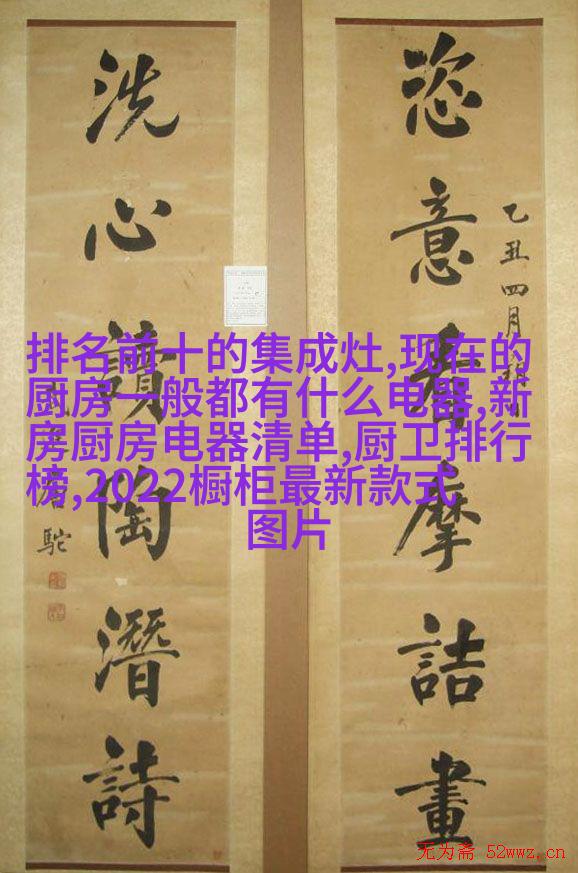 恣意看摩詰畫
乙丑四月
洗心讀陶潛詩
駝
排名前十的集成灶,现在的
厨房一般都有什么电器,新
房厨房电器清单,厨卫排行
榜,2022橱柜最新款式
图片
无为斋 52wwz.cn